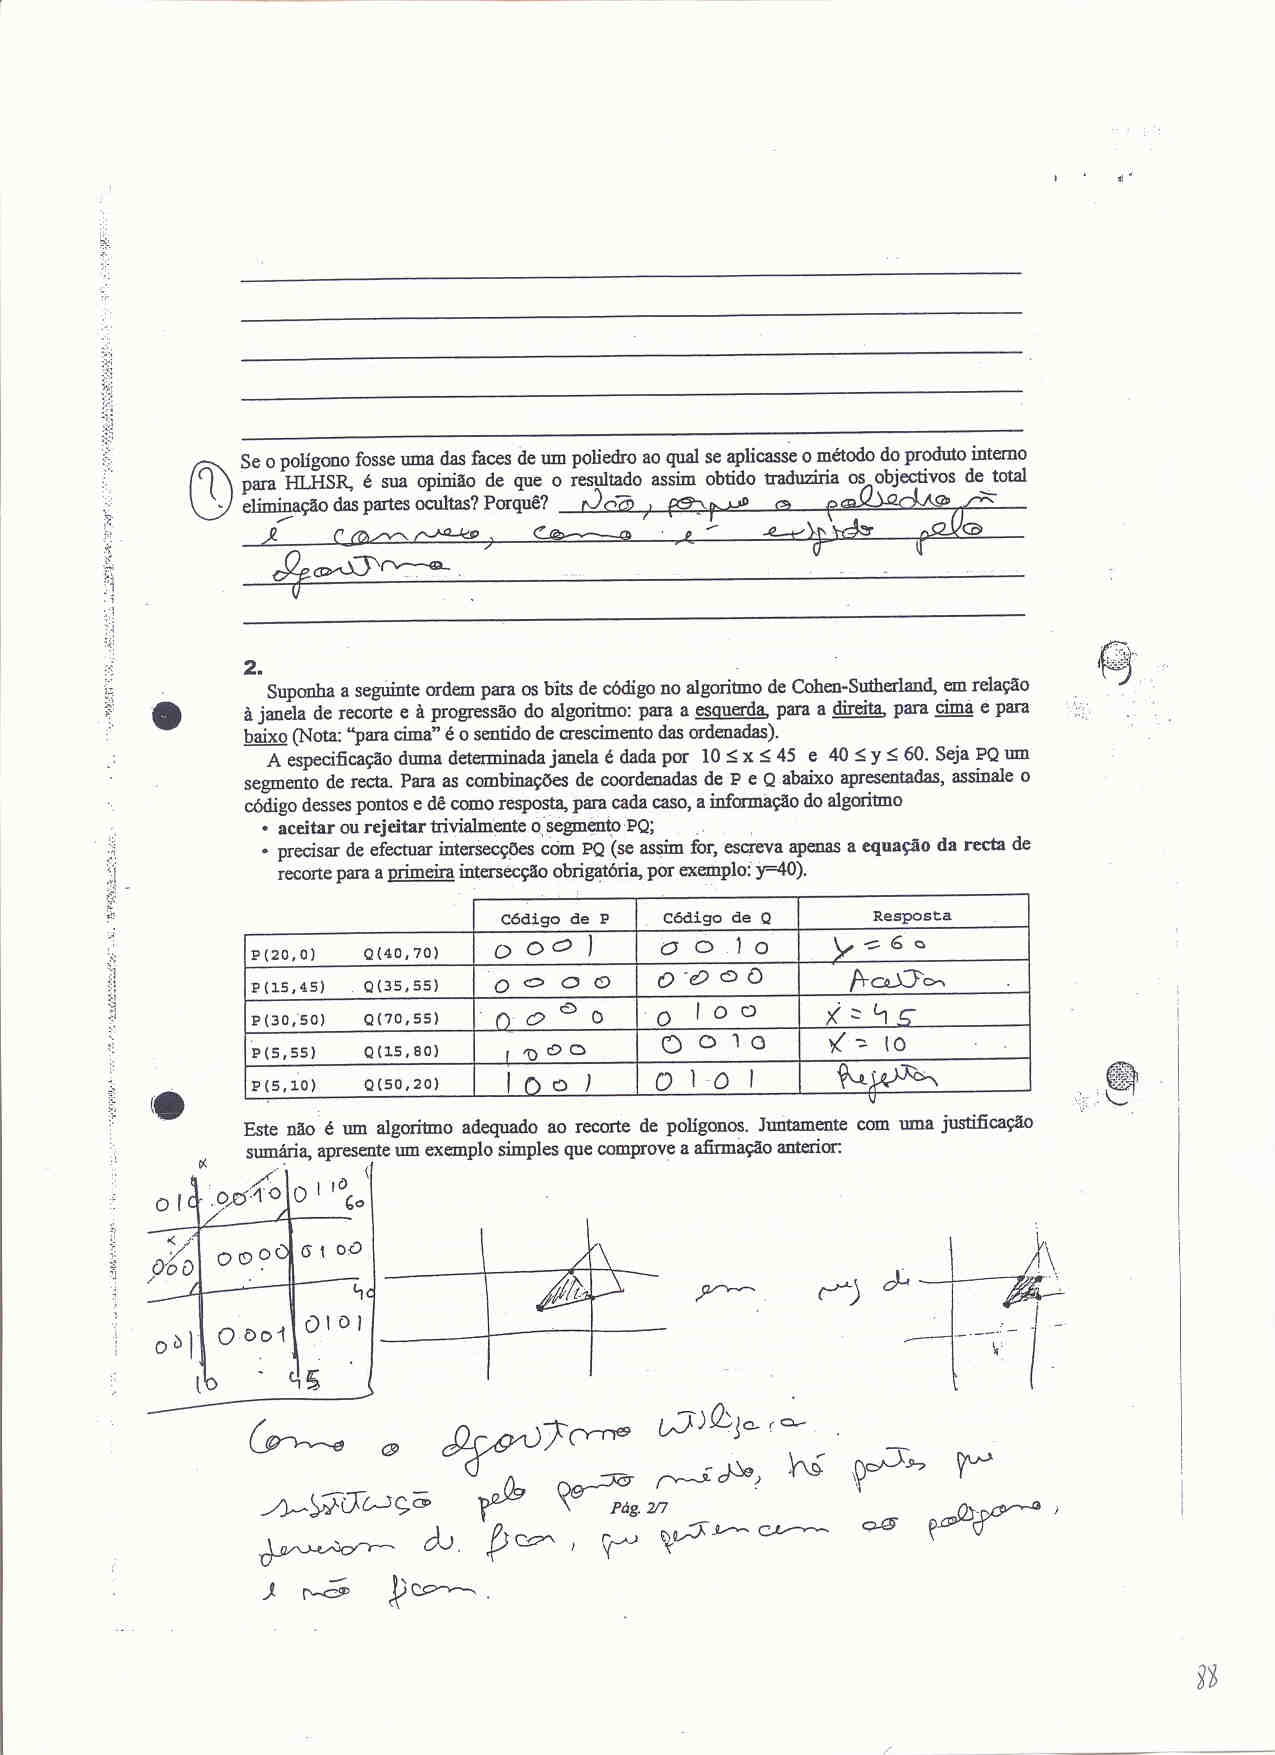 Se o polígono fosse uma das faces de um poliedro ao qual se aplicasse o método do produto interno
para HLHSR, é sua opinião de que o resultado assim obtido traduziria os objectivos de total
eliminação das partes ocultas? Porquê? Não, porque o poliedro ñ
é convexo, como é exigido pelo
algoritmo
?
2.
Suponha a seguinte ordem para os bits de código no algoritmo de Cohen-Sutherland, em relação
à janela de recorte e à progressão do algoritmo: para a esquerda, para a direita, para cima e para
baixo (Nota: “para cima” é o sentido de crescimento das ordenadas).
A especificação duma determinada janela é dada por 10 ≤ x ≤ 45 e 40 ≤ y ≤ 60. Seja PQ um
segmento de recta. Para as combinações de coordenadas de P e Q abaixo apresentadas, assinale o
código desses pontos e dê como resposta, para cada caso, a informação do algoritmo
• aceitar ou rejeitar trivialmente o segmento PQ;
• precisar de efectuar intersecções com PQ (se assim for, escreva apenas a equação da recta de
recorte para a primeira intersecção obrigatória, por exemplo: y=40).
Código de P Código de Q Resposta
P(20,0) Q(40,70) 0001 0010 y = 60
P(15,45) Q(35,55) 0000 0000 Aceita
P(30,50) Q(70,55) 0000 0100 x = 45
P(5,55) Q(15,80) 1000 0010 x = 10
P(5,10) Q(50,20) 1001 0101 Rejeita
Este não é um algoritmo adequado ao recorte de polígonos. Juntamente com uma justificação
sumária, apresente um exemplo simples que comprove a afirmação anterior:
0010 0110
60
0000 0100
40
001 0001 0101
10 45
em vez de
Como o algoritmo utiliza a
substituição pelo ponto médio, há partes que
Pág. 2/7
deveriam de ficar, que pertencem ao polígono,
e não ficam.
88